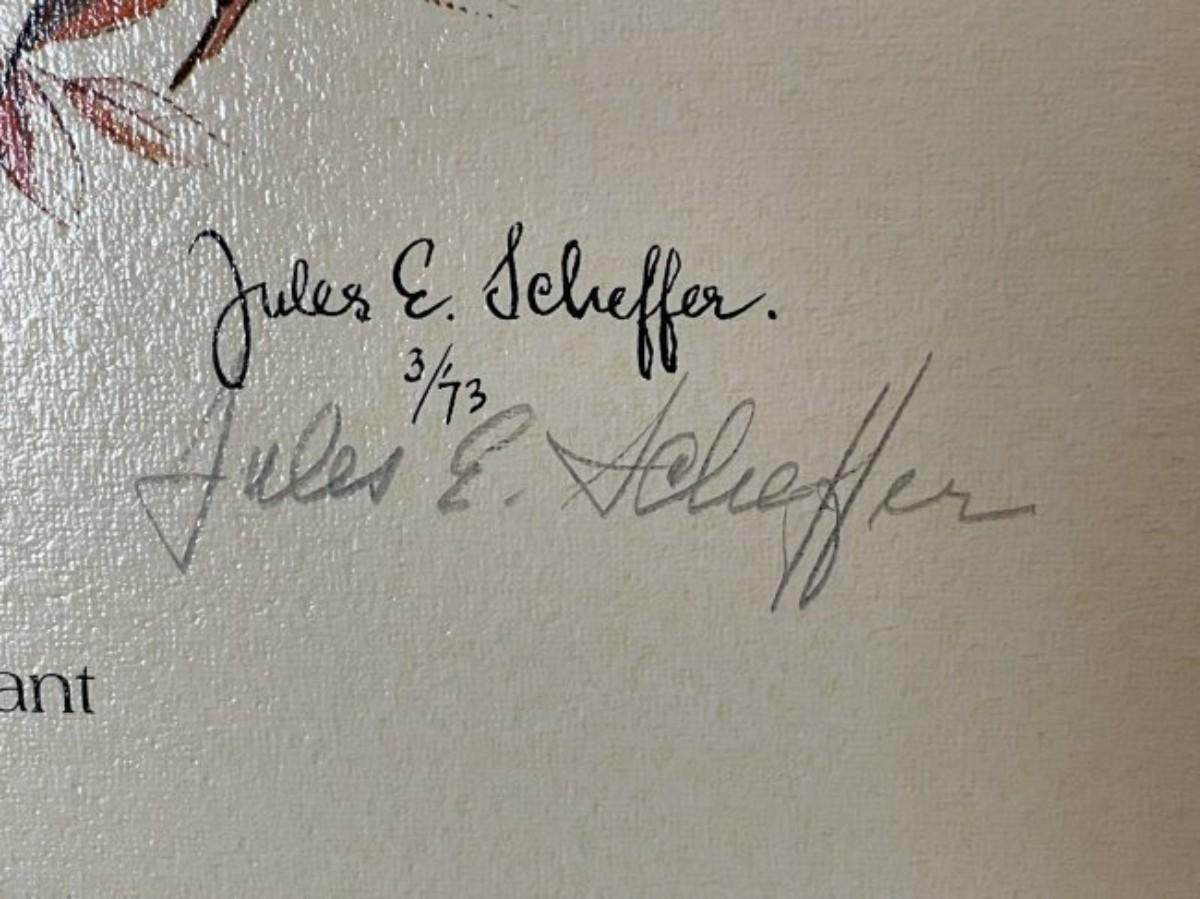 Jules E. Scheffer.
3/'73
Jules E. Scheffer
ant